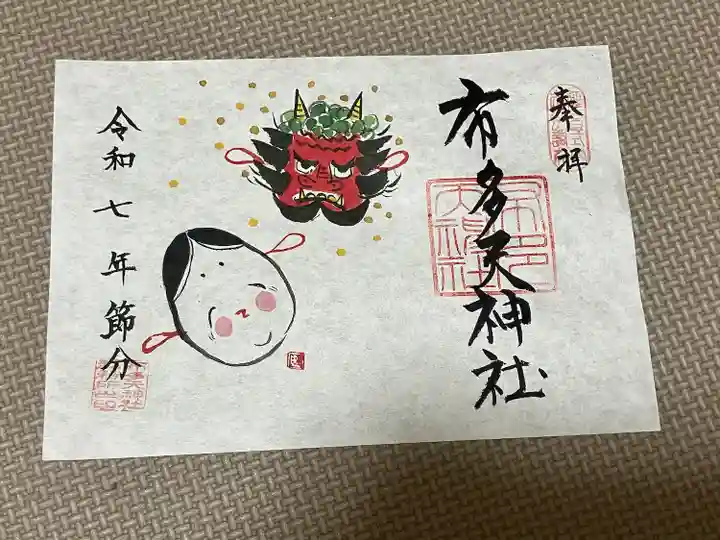 奉拝
布多天神社
令和七年節分